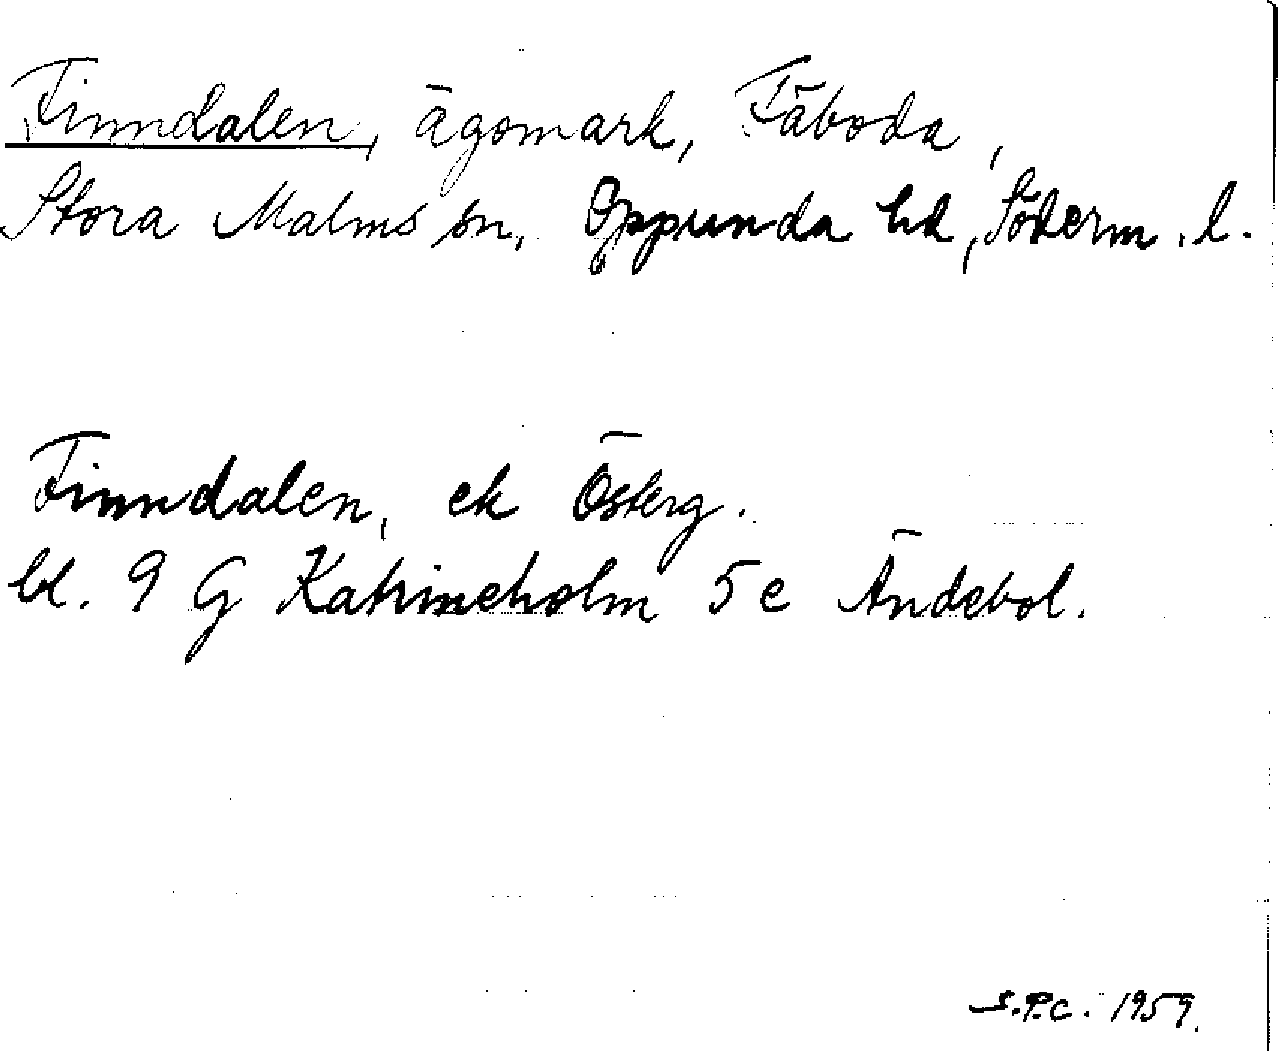 Finndalen, ägomark, Fäboda,
Stora Malms sn, Oppunda hd, Söderm. l.
Finndalen, ek Österg.
bl. 9 G Katrineholm 5e Ändebol.
S.P.C. 1959.